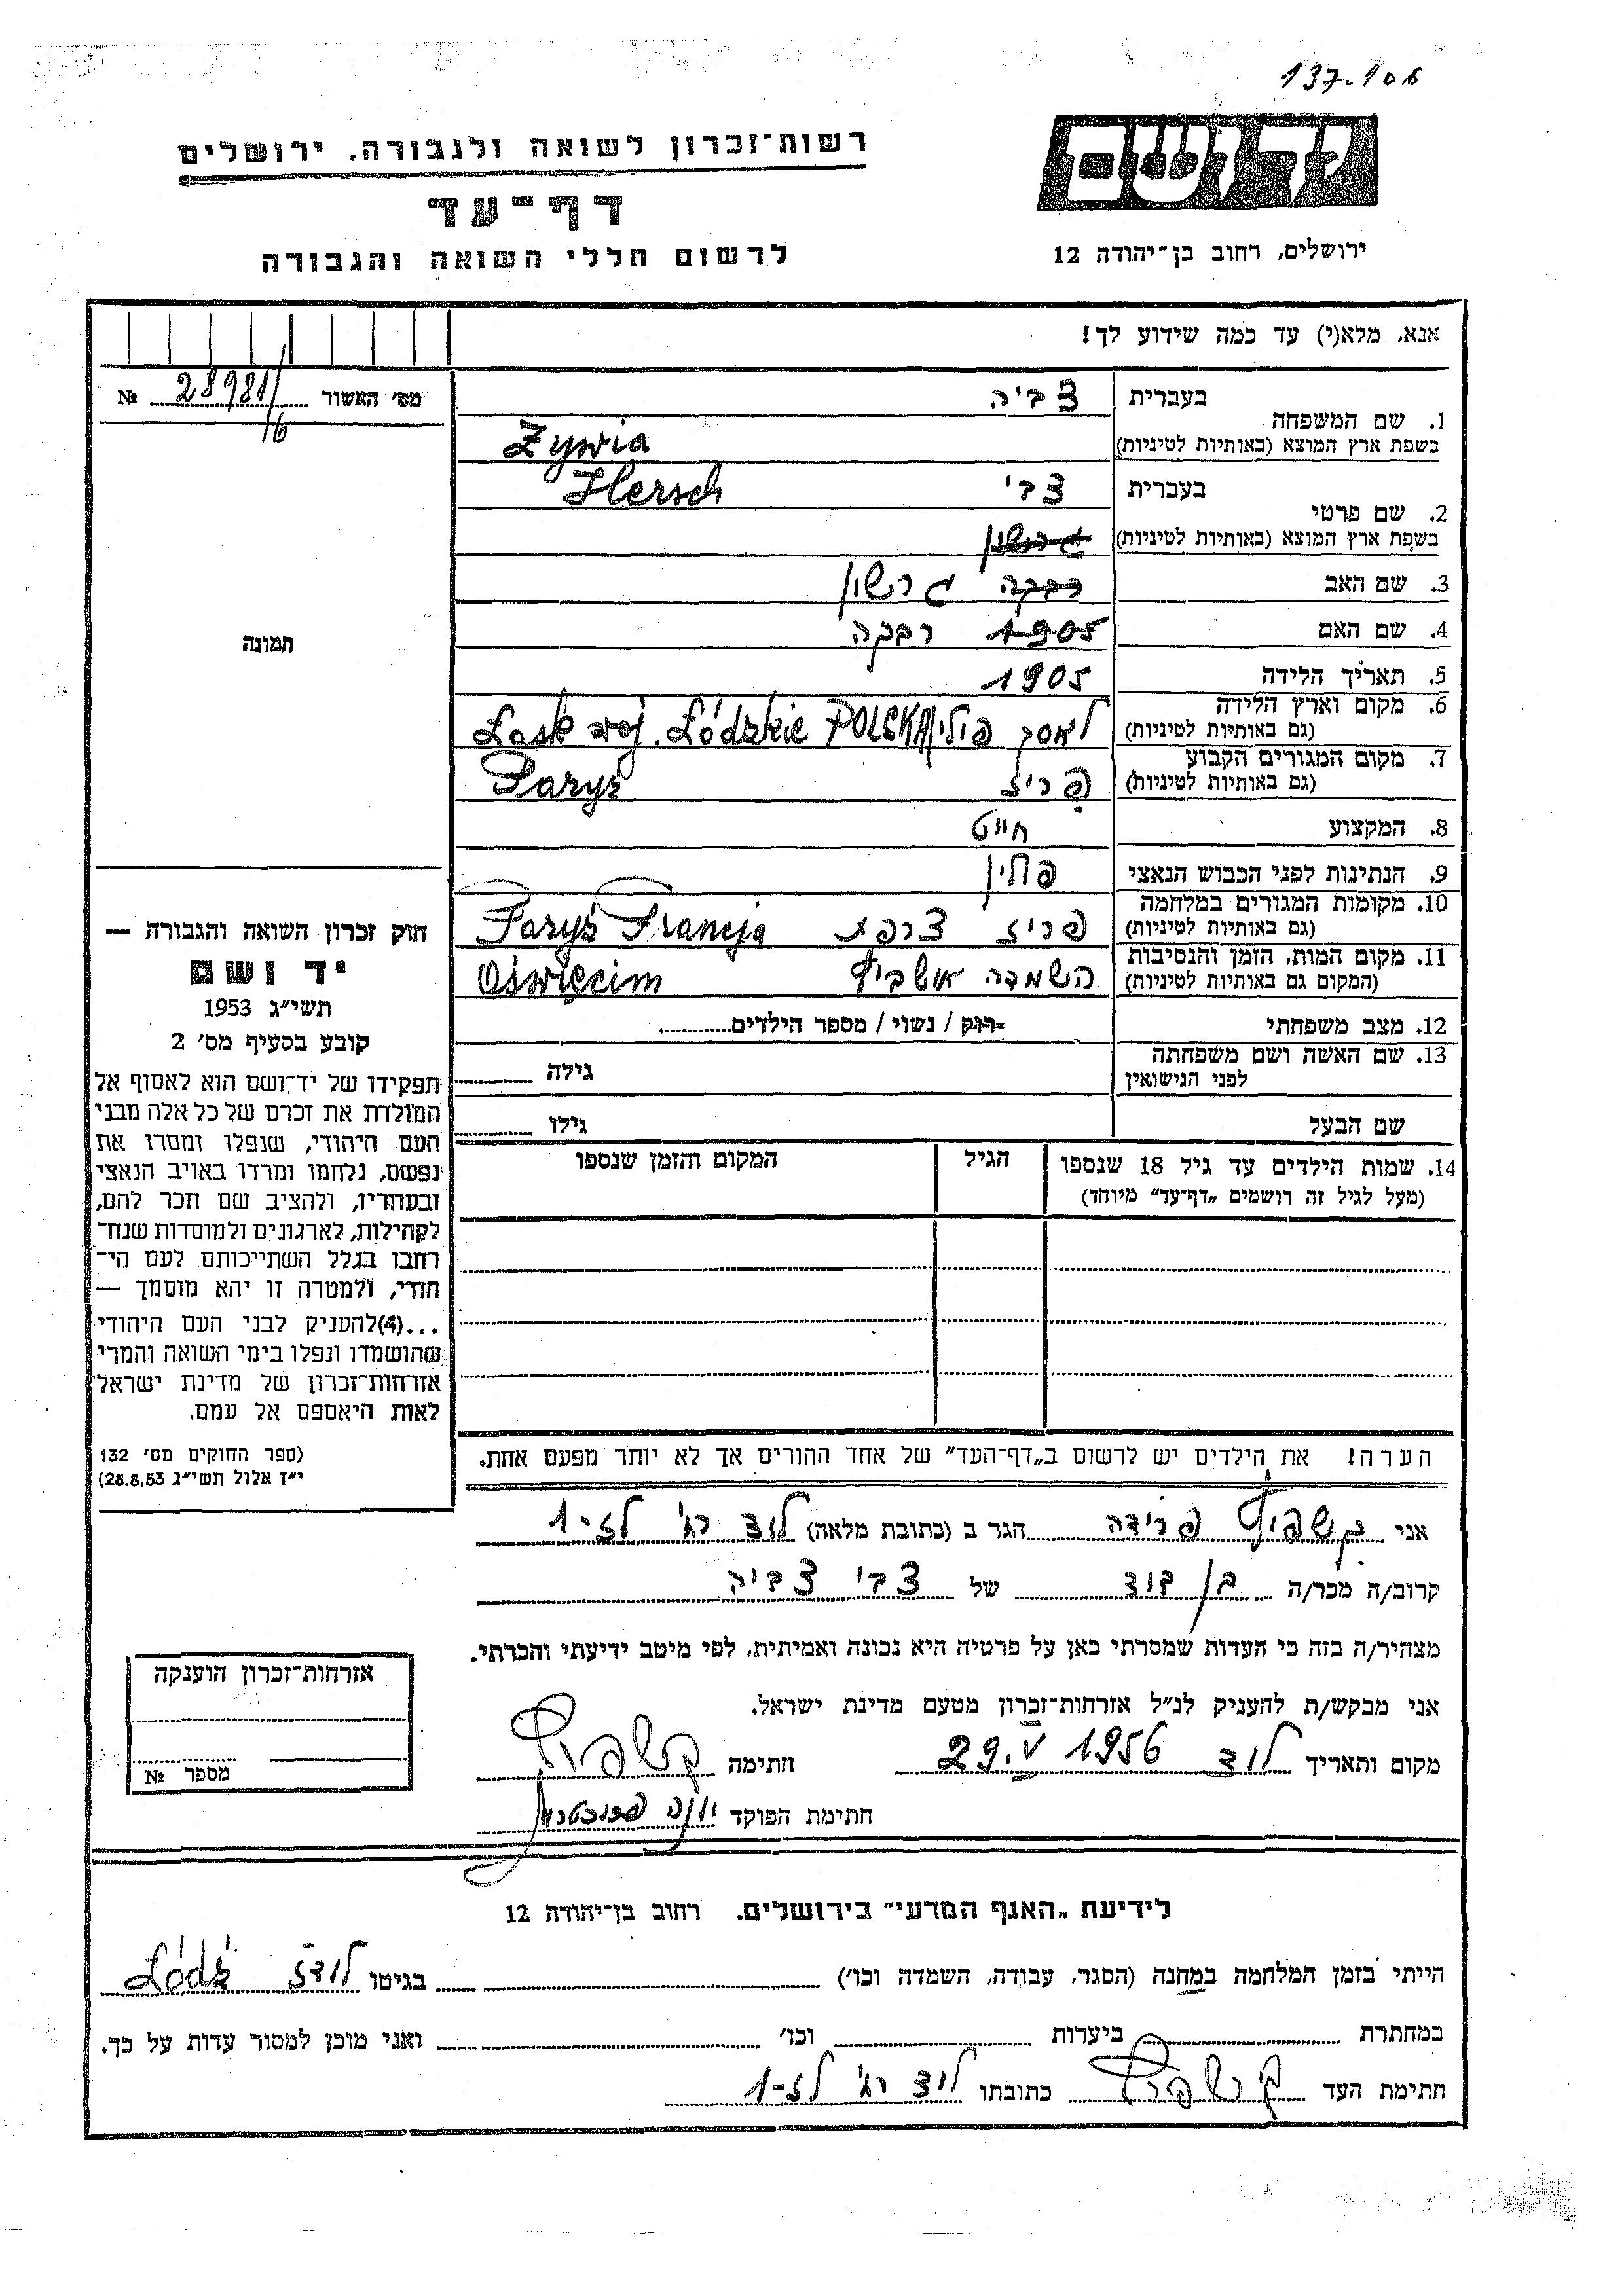 137.106
רשות־זכרון לשואה ולגבורה, ירושלים
יד ושם
דף־עד
לרשום חללי השואה והגבורה
ירושלים, רחוב בן־יהודה 12
אנא, מלא(י) עד כמה שידוע לך!
מס׳ האשור 28981/16 №
1. שם המשפחה
בעברית צביה
בשפת ארץ המוצא (באותיות לטיניות) Zywia
2. שם פרטי
בעברית צבי Hersch
בשפת ארץ המוצא (באותיות לטיניות) גרשון
3. שם האב רבקה גרשון
4. שם האם 1905 רבקה
5. תאריך הלידה 1905
6. מקום וארץ הלידה
(גם באותיות לטיניות) לאסק פולין Łask woj. Łódzkie POLSKA
7. מקום המגורים הקבוע
(גם באותיות לטיניות) פריז Paryż
8. המקצוע חייט
9. הנתינות לפני הכבוש הנאצי פולין
10. מקומות המגורים במלחמה
(גם באותיות לטיניות) פריז צרפת Paryż Francja
11. מקום המות, הזמן והנסיבות
(המקום גם באותיות לטיניות) השמדה אושביץ Oświęcim
12. מצב משפחתי רוק / נשוי / מספר הילדים
13. שם האשה ושם משפחתה
לפני הנישואין גילה
שם הבעל גילו
14. שמות הילדים עד גיל 18 שנספו
(מעל לגיל זה רושמים „דף־עד״ מיוחד)
הגיל
המקום והזמן שנספו
הערה! את הילדים יש לרשום ב„דף־העד״ של אחד ההורים אך לא יותר מפעם אחת.
תמונה
חוק זכרון השואה והגבורה —
יד ושם
תשי״ג 1953
קובע בסעיף מס׳ 2
תפקידו של יד־ושם הוא לאסוף אל
המולדת את זכרם של כל אלה מבני
העם היהודי, שנפלו ומסרו את
נפשם, נלחמו ומרדו באויב הנאצי
ובעוזריו, ולהציב שם וזכר להם,
לקהילות, לארגונים ולמוסדות שנח־
רבו בגלל השתייכותם לעם הי־
הודי, ולמטרה זו יהא מוסמך —
...(4)להעניק לבני העם היהודי
שהושמדו ונפלו בימי השואה והמרי
אזרחות־זכרון של מדינת ישראל
לאות היאספם אל עמם.
(ספר החוקים מס׳ 132
י״ז אלול תשי״ג 28.8.53)
אני קשפיץ פרידה הגר ב (כתובת מלאה) לוד רח׳ לז-1
קרוב/ה מכר/ה בן דוד של צבי צביה
מצהיר/ה בזה כי העדות שמסרתי כאן על פרטיה היא נכונה ואמיתית, לפי מיטב ידיעתי והכרתי.
אני מבקש/ת להעניק לנ״ל אזרחות־זכרון מטעם מדינת ישראל.
מקום ותאריך לוד 29.V 1956 חתימה קשפיץ
חתימת הפוקד יונה
אזרחות־זכרון הוענקה
מספר №
לידיעת „האגף המדעי״ בירושלים. רחוב בן־יהודה 12
הייתי בזמן המלחמה במחנה (הסגר, עבודה, השמדה וכו׳) בגיטו לודז Łódź
במחתרת ביערות וכו׳ ואני מוכן למסור עדות על כך.
חתימת העד קשפיץ כתובתו לוד רח׳ לז-1